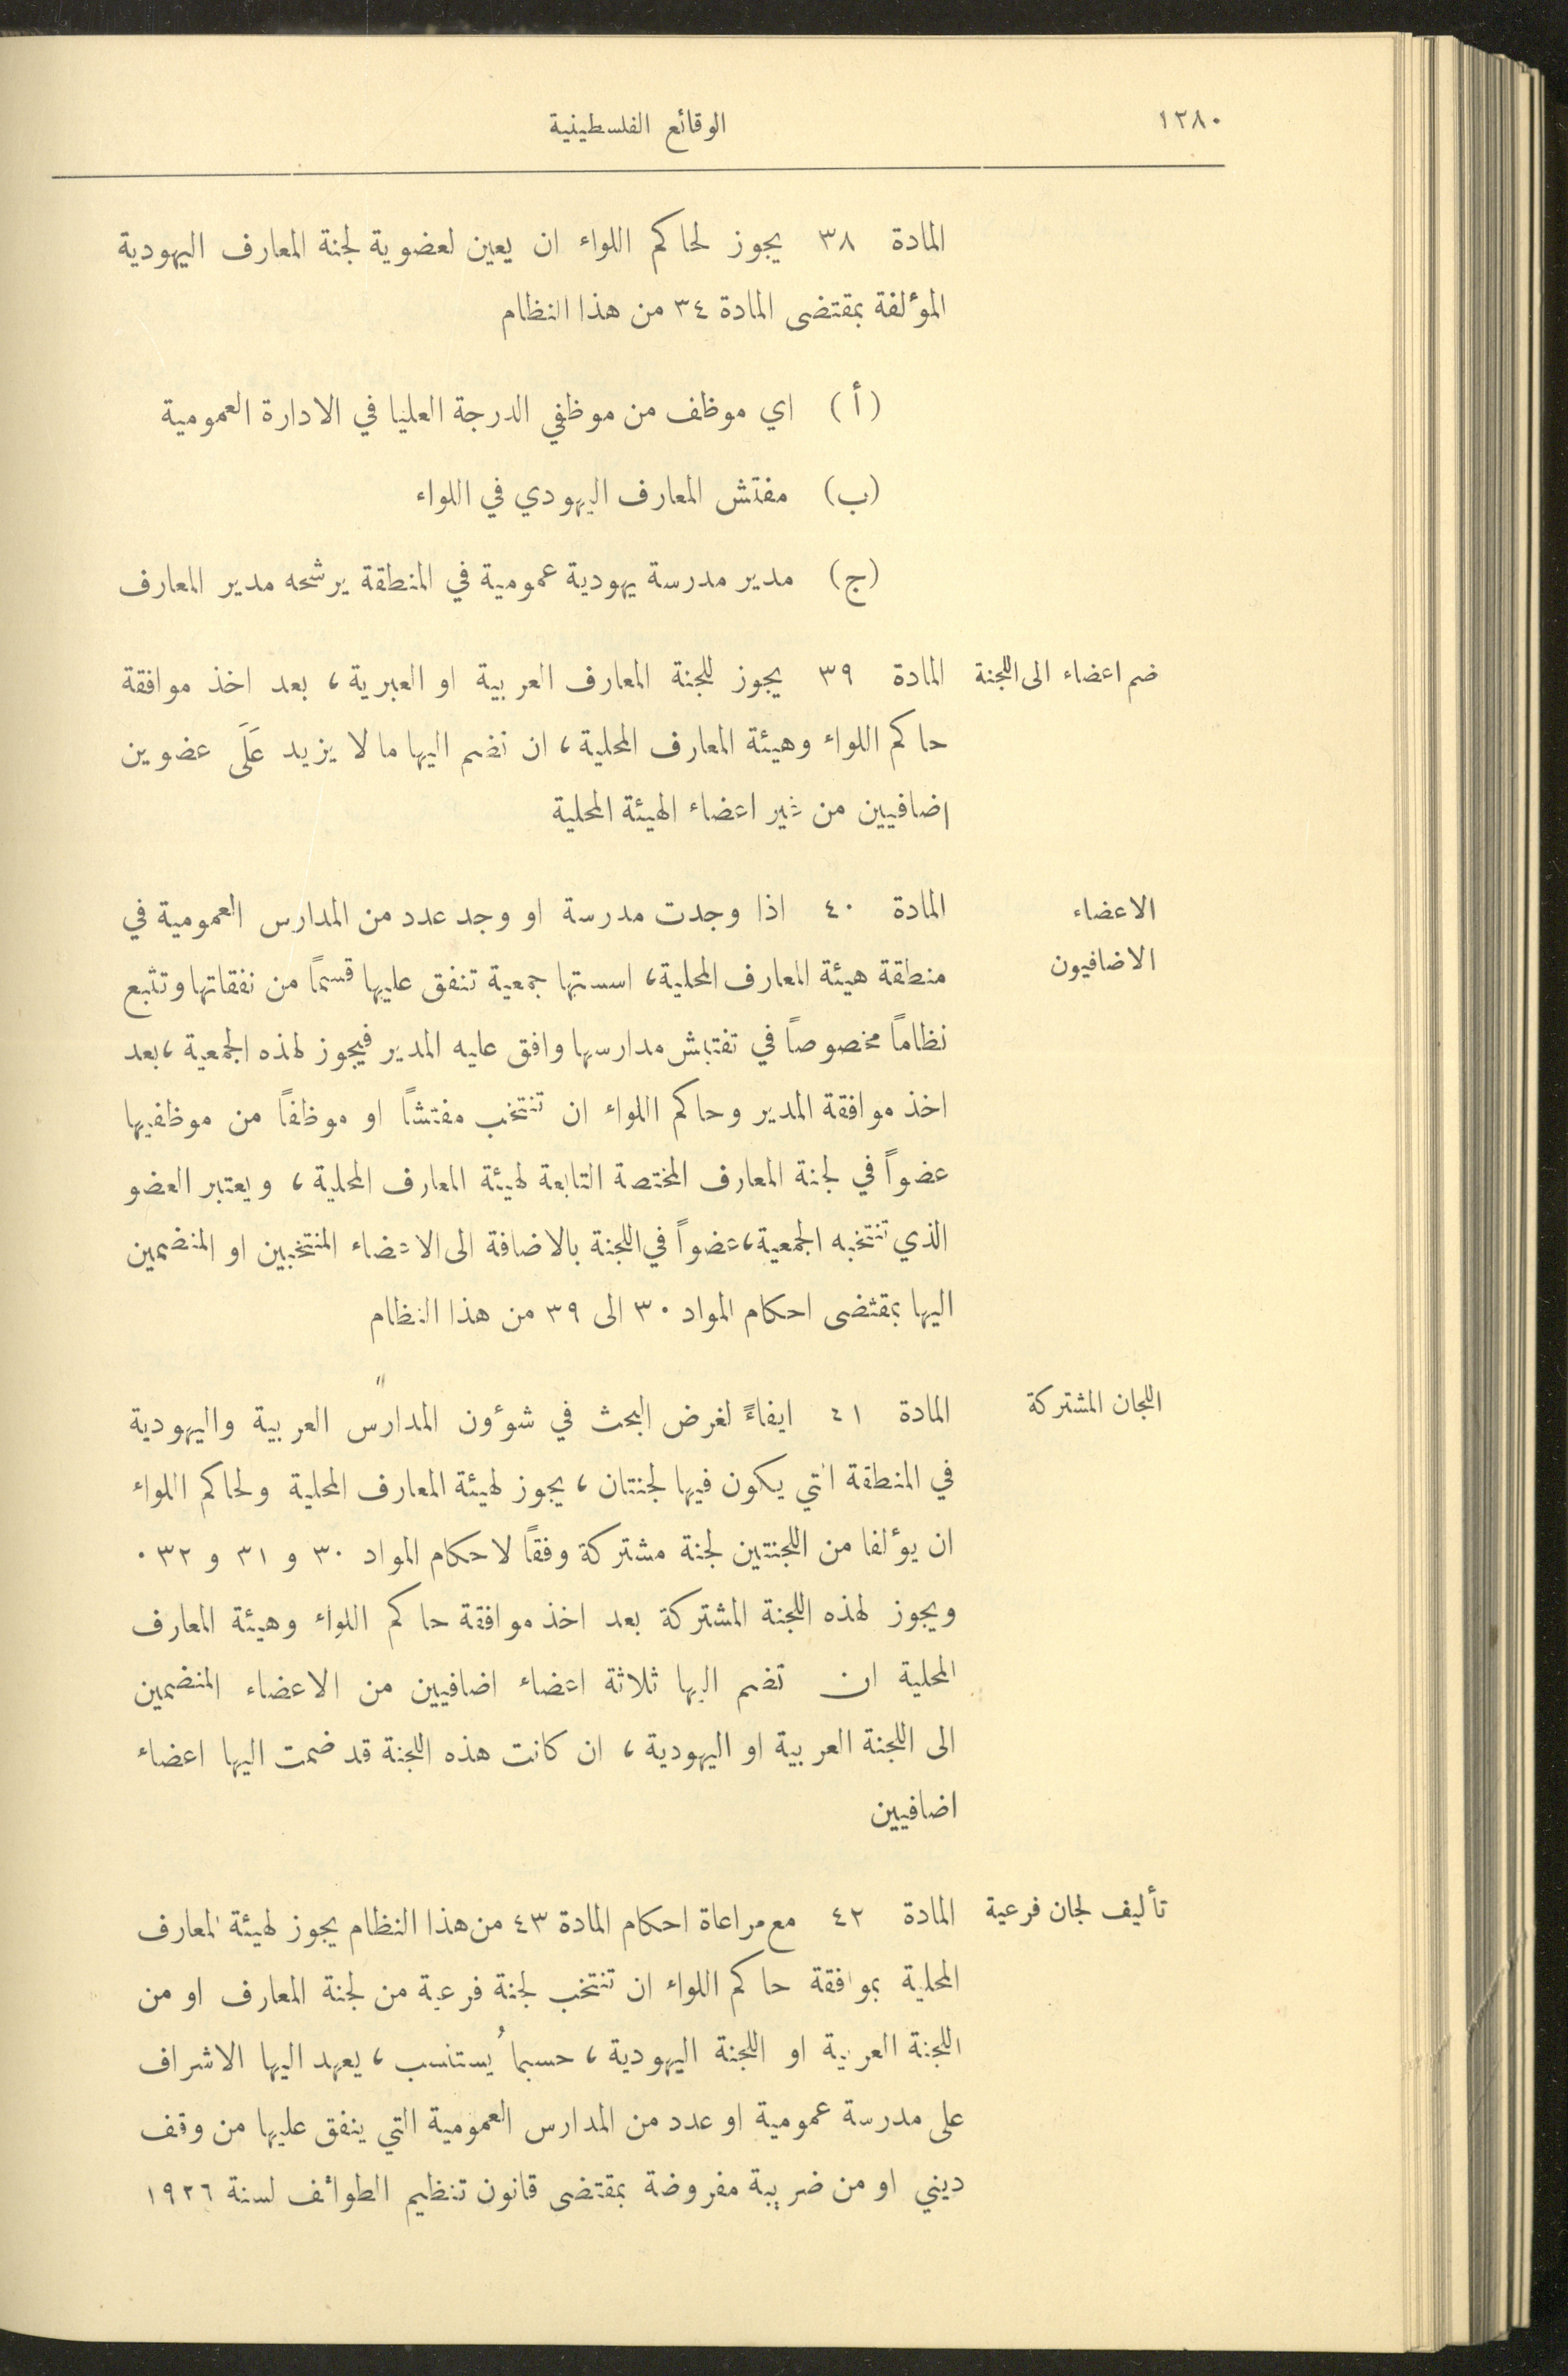 ١٢٨٠
الوقائع الفلسطينية
المادة ٣٨ يجوز لحاكم اللواء ان يعين لعضوية لجنة المعارف اليهودية
المؤلفة بمقتضى المادة ٣٤ من هذا النظام
(أ) اي موظف من موظفي الدرجة العليا في الادارة العمومية
(ب) مفتش المعارف اليهودي في اللواء
(ج) مدير مدرسة يهودية عمومية في المنطقة يرشحه مدير المعارف
ضم اعضاء الى اللجنة
المادة ٣٩ يجوز للجنة المعارف العربية او العبرية، بعد اخذ موافقة
حاكم اللواء وهيئة المعارف المحلية، ان تضم اليها ما لا يزيد عَلَى عضوين
اضافيين من غير اعضاء الهيئة المحلية
الاعضاء
الاضافيون
المادة ٤٠ اذا وجدت مدرسة او وجد عدد من المدارس العمومية في
منطقة هيئة المعارف المحلية، اسستها جمعية تنفق عليها قسمًا من نفقاتها وتتبع
نظاماً مخصوصاً في تفتيش مدارسها وافق عليه المدير فيجوز لهذه الجمعية، بعد
اخذ موافقة المدير وحاكم اللواء ان تنتخب مفتشاً او موظفاً من موظفيها
عضواً في لجنة المعارف المختصة التابعة لهيئة المعارف المحلية، ويعتبر العضو
الذي تنتخبه الجمعية، عضواً في اللجنة بالاضافة الى الاعضاء المنتخبين او المنضمين
اليها بمقتضى احكام المواد ٣٠ الى ٣٩ من هذا النظام
اللجان المشتركة
المادة ٤١ ايفاءً لغرض البحث في شؤون المدارس العربية واليهودية
في المنطقة التي يكون فيها لجنتان، يجوز لهيئة المعارف المحلية ولحاكم اللواء
ان يؤلفا من اللجنتين لجنة مشتركة وفقاً لاحكام المواد ٣٠ و ٣١ و ٣٢ .
ويجوز لهذه اللجنة المشتركة بعد اخذ موافقة حاكم اللواء وهيئة المعارف
المحلية ان تضم اليها ثلاثة اعضاء اضافيين من الاعضاء المنضمين
الى اللجنة العربية او اليهودية، ان كانت هذه اللجنة قد ضمت اليها اعضاء
اضافيين
تأليف لجان فرعية
المادة ٤٢ مع مراعاة احكام المادة ٤٣ من هذا النظام يجوز لهيئة المعارف
المحلية بموافقة حاكم اللواء ان تنتخب لجنة فرعية من لجنة المعارف او من
اللجنة العربية او اللجنة اليهودية، حسبما يُستنسب، يعهد اليها الاشراف
على مدرسة عمومية او عدد من المدارس العمومية التي ينفق عليها من وقف
ديني او من ضريبة مفروضة بمقتضى قانون تنظيم الطوائف لسنة ١٩٢٦